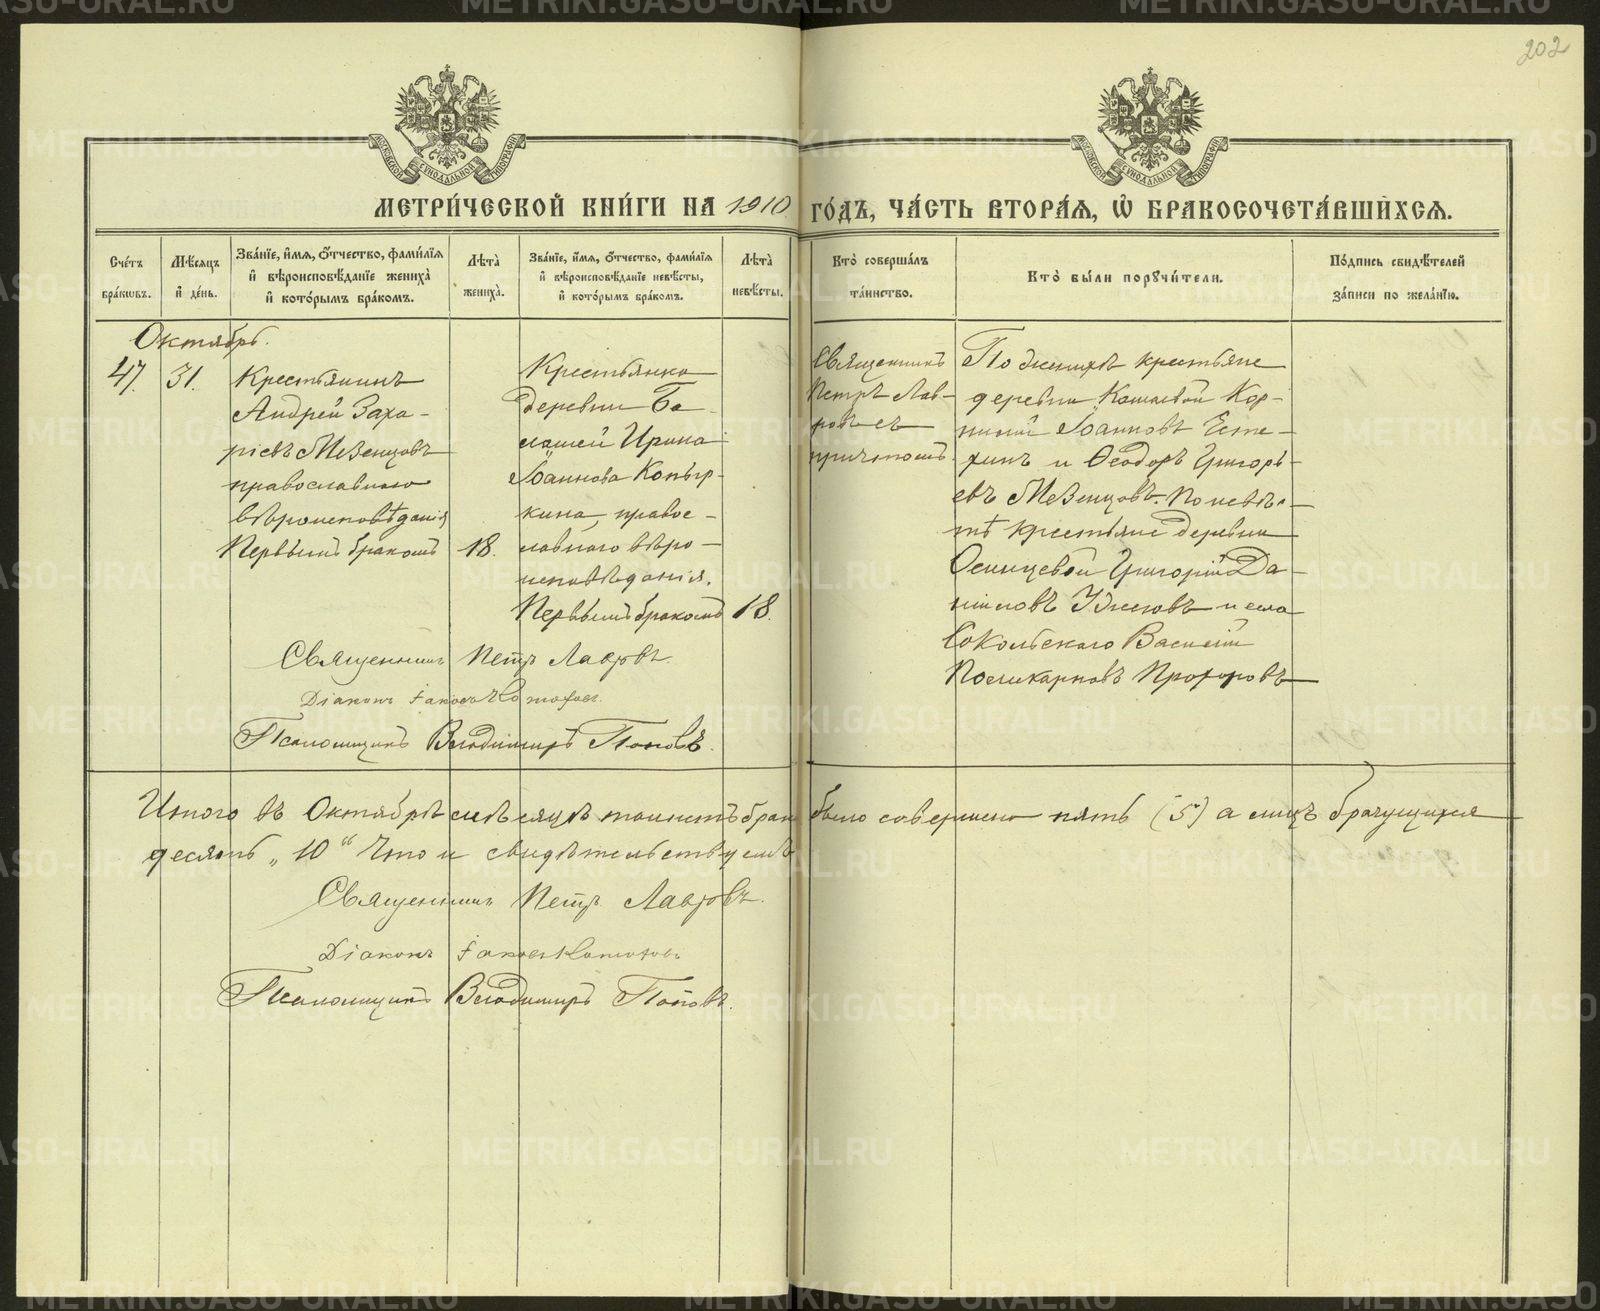 202
МОСКОВСКОЙ СѴНОДАЛЬНОЙ ТИПОГРАФІИ
МОСКОВСКОЙ СѴНОДАЛЬНОЙ ТИПОГРАФІИ
МЕТРИ́ЧЕСКОЙ КНИ́ГИ НА 1910 ГО́ДЪ, ЧА́СТЬ ВТОРА́Я, Ѡ҆ БРАКОСОЧЕТА́ВШИХСЯ.
Сче́тъ бра́кѡвъ.
Мѣ́сяцъ и҆ де́нь.
Зва́нїе, и҆́мя, ѻ҆́тчество, фами́лїя
и҆ вѣроисповѣ́данїе жениха̀
и҆ кото́рымъ бра́комъ.
Лѣ́та жениха̀.
Зва́нїе, и҆́мя, ѻ҆́тчество, фами́лїя
и҆ вѣроисповѣ́данїе невѣ́сты,
и҆ кото́рымъ бра́комъ.
Лѣ́та невѣ́сты.
Кто̀ соверша́лъ та́инство.
Кто̀ бы́ли порꙋчи́тели.
По́дпись свидѣ́телей
за́писи по жела́нїю.
Октябрь.
47.
31.
Крестьянинъ
Андрей Заха-
ріевъ Мезенцовъ
православнаго
вѣроисповѣданія
Первымъ бракомъ
18.
Крестьянка
деревни Ба-
Ирина
Іоаннова Копыр-
кина, правос-
лавнаго вѣро-
исповѣданія.
Первымъ бракомъ
18.
Священникъ
Петръ Лав-
ровъ съ
причтомъ.
По женихѣ крестьяне
деревни Кор-
нилій Іоанновъ
и Ѳеодоръ Григорь-
евъ Мезенцовъ. По невѣс-
тѣ крестьяне деревни
Осинцевой Григорій Да-
ниловъ и села
Сокольскаго Василій
Поликарповъ Прохоровъ
Священникъ Петръ Лавровъ.
Діаконъ Іаковъ
Псаломщикъ Владимиръ Поповъ.
Итого въ Октябрѣ мѣсяцѣ таинствъ брака было совершено пять (5) а лицъ брачущихся
десять „10“ Что и свидѣтельствуемъ
Священникъ Петръ Лавровъ.
Діаконъ Іаковъ
Псаломщикъ Владимиръ Поповъ.
METRIKI.GASO-URAL.RU